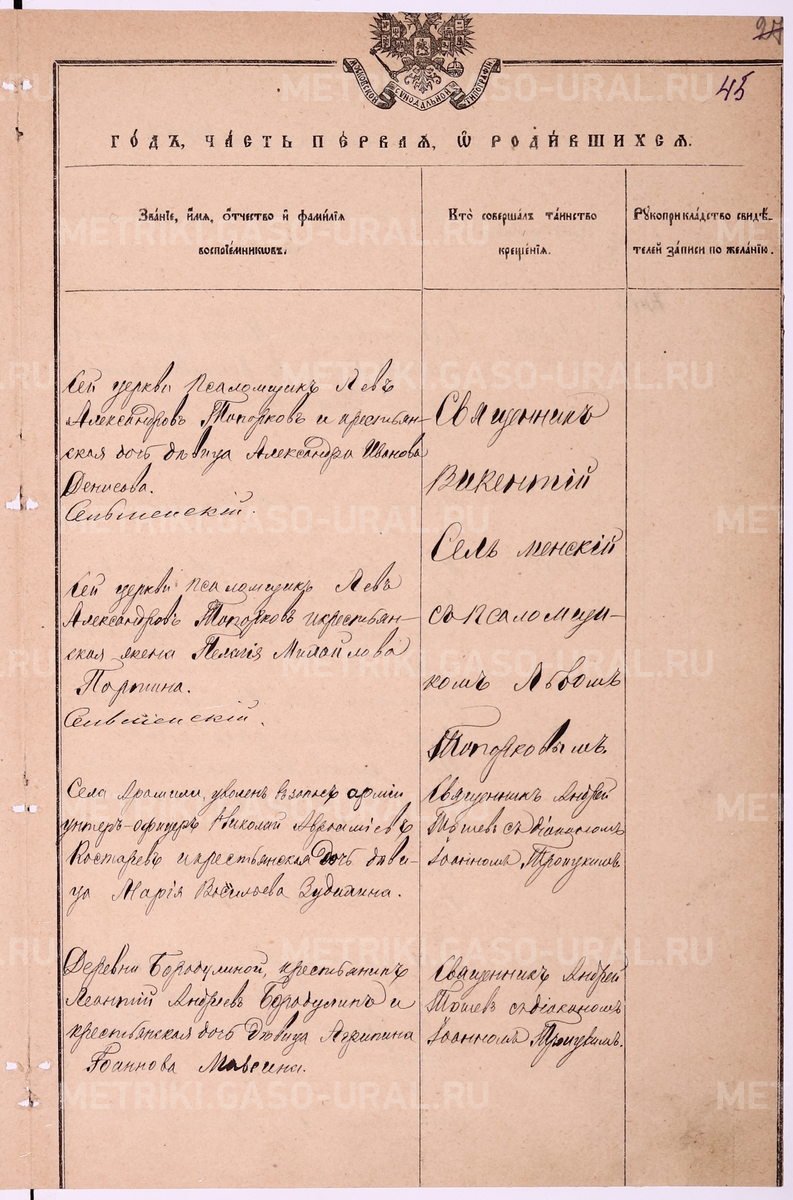 45
ХАРЬКОВСКОЙ СѴНОДАЛЬНОЙ ТИПОГРАФІИ
ГОДЪ, ЧАСТЬ ПЕРВАЯ, Ѡ РОДИВШИХСЯ.
Званіе, имя, отчество и фамилія
воспріемниковъ.
Кто совершалъ таинство
крещенія.
Рукоприкладство свидѣ-
телей записи по желанію.
Сей церкви псаломщикъ Левъ
Александровъ Топорковъ и крестьян-
ская дочь дѣвица Александра Иванова
Денисова.
Сельменскій.
Сей церкви псаломщикъ Левъ
Александровъ Топорковъ и крестьян-
ская жена Пелагія Михайлова
Паршина.
Сельменскій.
Священникъ
Викентій
Сельменскій
съ псаломщи-
комъ Львомъ
Топорковымъ.
Села Арамили, уволен. въ запасъ арміи
унтеръ-офицеръ Николай Авраамиевъ
Костаревъ и крестьянская дочь дѣви-
ца Марія Васильева Зудихина.
Священникъ Андрей
съ діакономъ
Іоанномъ Троицкимъ
Деревни Бородулиной, крестьянинъ
Леонтій Андреевъ Бородулинъ и
крестьянская дочь дѣвица Агрипина
Іоаннова Мавсина.
Священникъ Андрей
съ діакономъ
Іоанномъ Троицкимъ.
METRIKI.GASO-URAL.RU